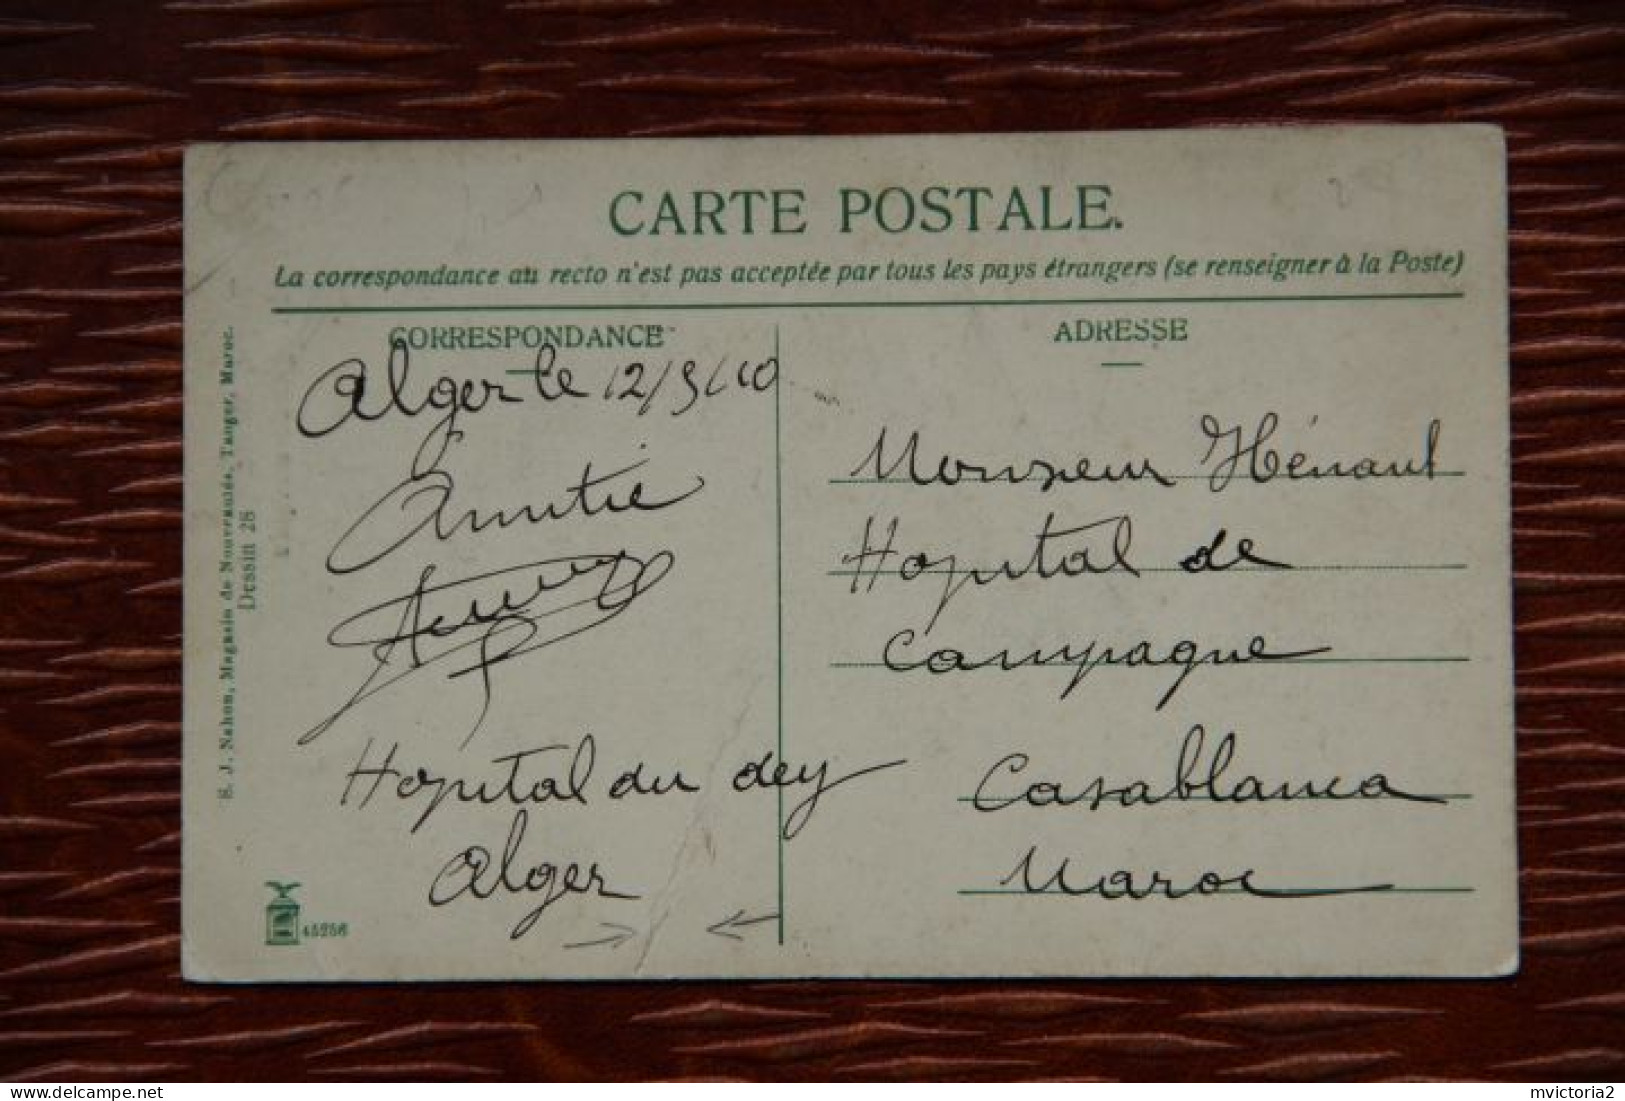 CARTE POSTALE.
La correspondance au recto n'est pas acceptée par tous les pays étrangers (se renseigner à la Poste)
CORRESPONDANCE
Alger le 12/5/10
Amitié
Hopital du dey
Alger
ADRESSE
Monsieur Hénault
Hopital de
Campagne
Casablanca
Maroc
S. J. Nahon, Magasin de Nouveautés, Tanger, Maroc.
Dessin 28
45256
mvictoria2